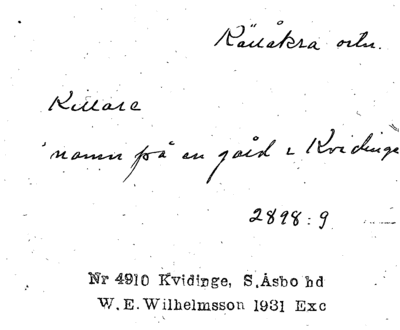 Källåkra ortn.
Killare
namn på en gård i Kvidinge
2898:9
Nr 4910 Kvidinge, S.Åsbo hd
W.E.Wilhelmsson 1931 Exc